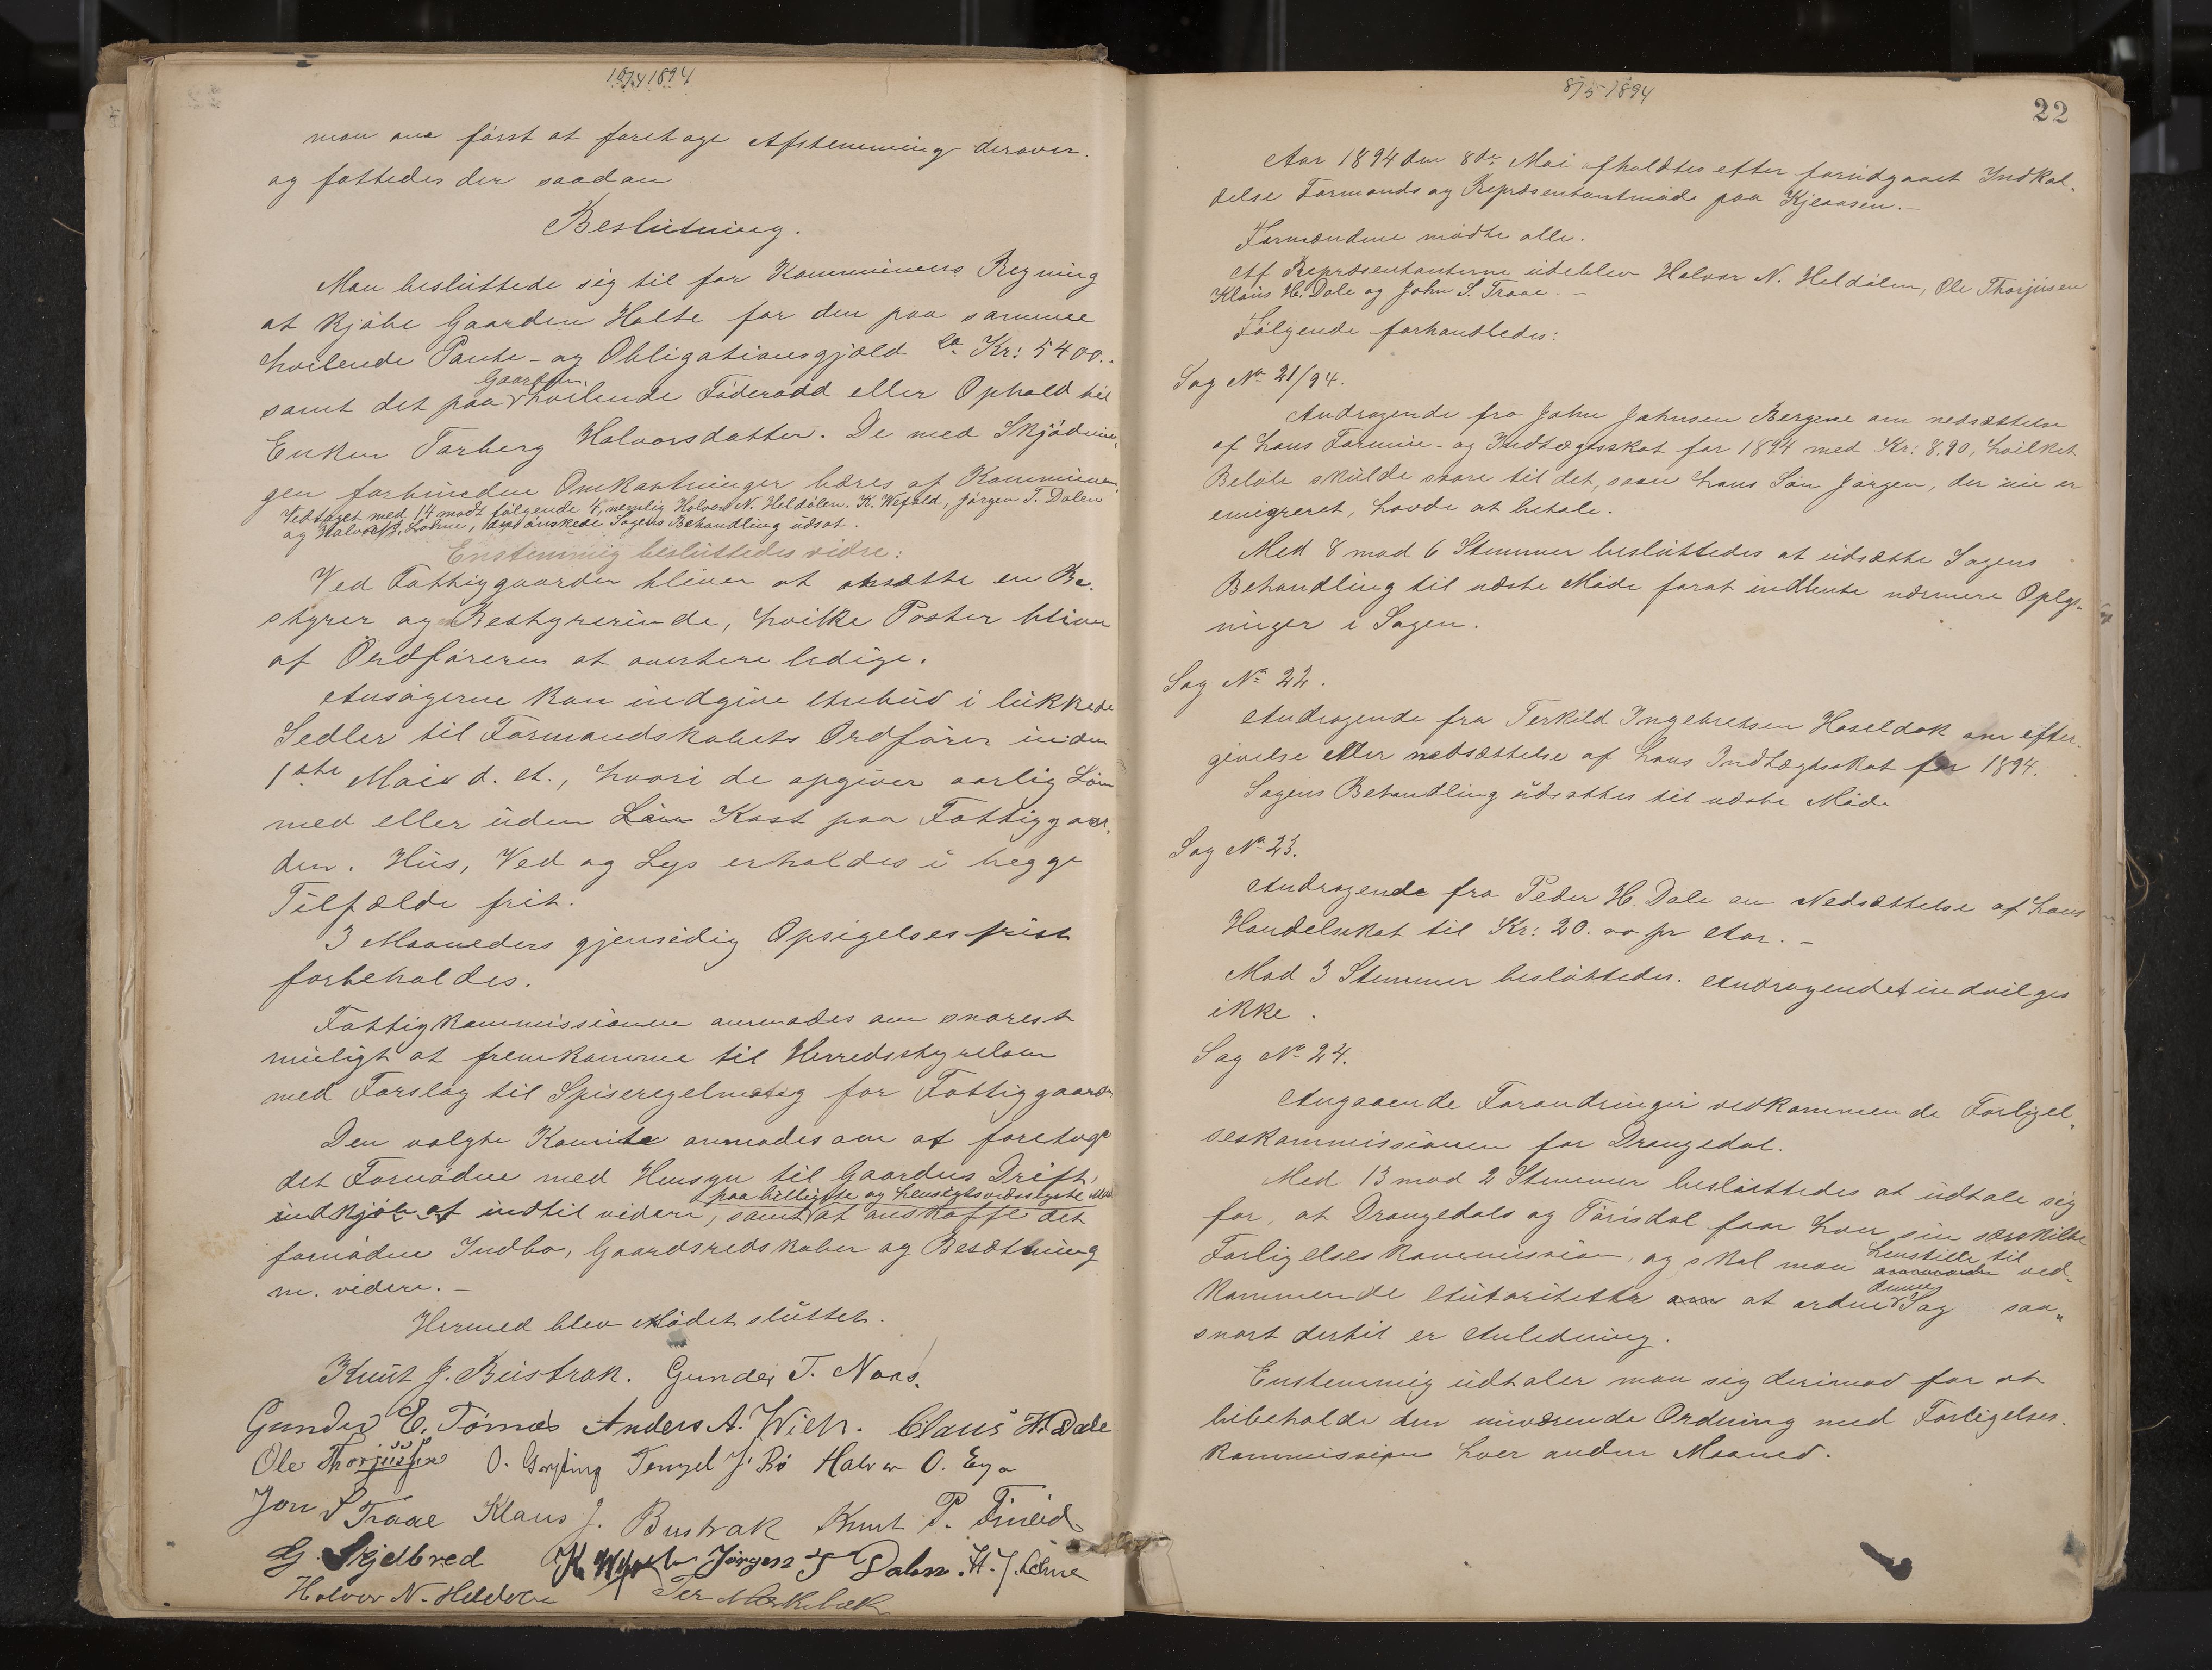 10/4 1894
man over först at foretage Afstemning derover.
og fattedes der saadan
Beslutning.
Man besluttede sig til for Kommunens Regning
at kjøbe Gaarden Holte for den paa samme
hvilende Pante- og Obligationsgjæld Kr: 5400.-
Gaarden
samt det paa hvilende Föderaad eller Ophold til
Enken Torberg Halvorsdatter. De med Skjödnin-
gen forbundne Omkostninger bæres af Kommunen.
Vedtaget med 14 modt følgende 4, nemlig Halvor N. Heldölen, K. Wefald, Jörgen T. Dolen
og Halvor J. Lohne, der önskede Sagens Behandling udsat.
Enstemmig besluttedes vidre:
Ved Fattiggaarden bliver at ansætte en Be-
styrer og Bestyrerinde, hvilke Poster bliver
af Ordföreren at avertere ledige.
Ansögerne kan indgive Anbud i lukkede
Sedler til Formandskabets Ordförer inden
1ste Mai d. A., hvori de opgiver aarlig Lön
med eller uden Kost paa Fattiggaar-
den. Hus, Ved og Lys erholdes i begge
Tilfælde frit.
3 Maaneders gjensidig Opsigelsesfrist
forbeholdes.
Fattigkommissionen anmodes om snarest
muligt at fremkomme til Herredsstyrelsen
med Forslag til Spiseregelmæteg for Fattiggaarden
Den valgte Komite anmodes om at foretage
det Fornödne med Hensyn til Gaardens Drift,
paa billigste og hensigtsvæssigste Maade
indkjöb af indtil videre, samt at anskaffe det
fornödne Indbo, Gaardsredskaber og Besætning
m. videre. -
Hermed blev Mödet sluttet.
Knut J. Bustrak. Gunder T. Naas.
Gunder E. Tørnæs Anders A. Wieh. Claus H. Dale
Ole Thorjussen O. Gautefall Tengel J. Bö Halvor O. Eya
Jon S Traae Klaus J. Bustrak Knut P. Tveid
G. Skjelbred K Wefald Jørgen T Dalen. H. J. Lohne
Halvor N. Heldöle Per Mærkebæk
8/5 1894
22
Aar 1894 den 8de Mai afholdtes efter forudgaaet Indkal-
delse Formands og Repræsentantmöde paa Kjeaasen. -
Formændene mödte alle.
Af Repræsentanterne udeblev Halvor N. Heldölen, Ole Thorjusen
Klaus H. Dale og John S. Traae. -
Fölgende forhandledes:
Sag No 21/94.
Andragende fra John Johnsen Bergene om nedsættelse
af hans Formue- og Indtægtsskat for 1894 med Kr: 8.90, hvilket
Belöb skulde svare til det, som hans Sön Jörgen, der nu er
emigreret, havde at betale.
Med 8 mod 6 Stemmer besluttedes at udsætte Sagens
Behandling til næste Möde forat indhente nærmere Oplys-
ninger i Sagen.
Sag No 22.
Andragende fra Terkild Ingebretsen Haseldok om efter-
givelse eller nedsættelse af hans Indtægtsskat for 1894.
Sagens Behandling udsattes til næste Möde
Sag No 23.
Andragende fra Peder H. Dale om Nedsættelse af hans
Handelsskat til Kr: 20.00 pr Aar. -
Mod 3 Stemmer besluttedes. Andragendet indvilges
ikke.
Sag No 24.
Angaaende Forandringer vedkommende Forligel-
seskommissionen for Drangedal.
Med 13 mod 2 Stemmer besluttedes at udtale sig
for, at Drangedals og Törisdal faar hver sin særskilte
henstille til
Forligelseskommission, og skal man anmode ved-
denne
kommende Autoriteter om at ordne Sag saa-
snart dertil er Anledning.
Enstemmig udtaler man sig derimod for at
bibeholde den nuværende Ordning med Forligelses-
kommission hver anden Maaned.